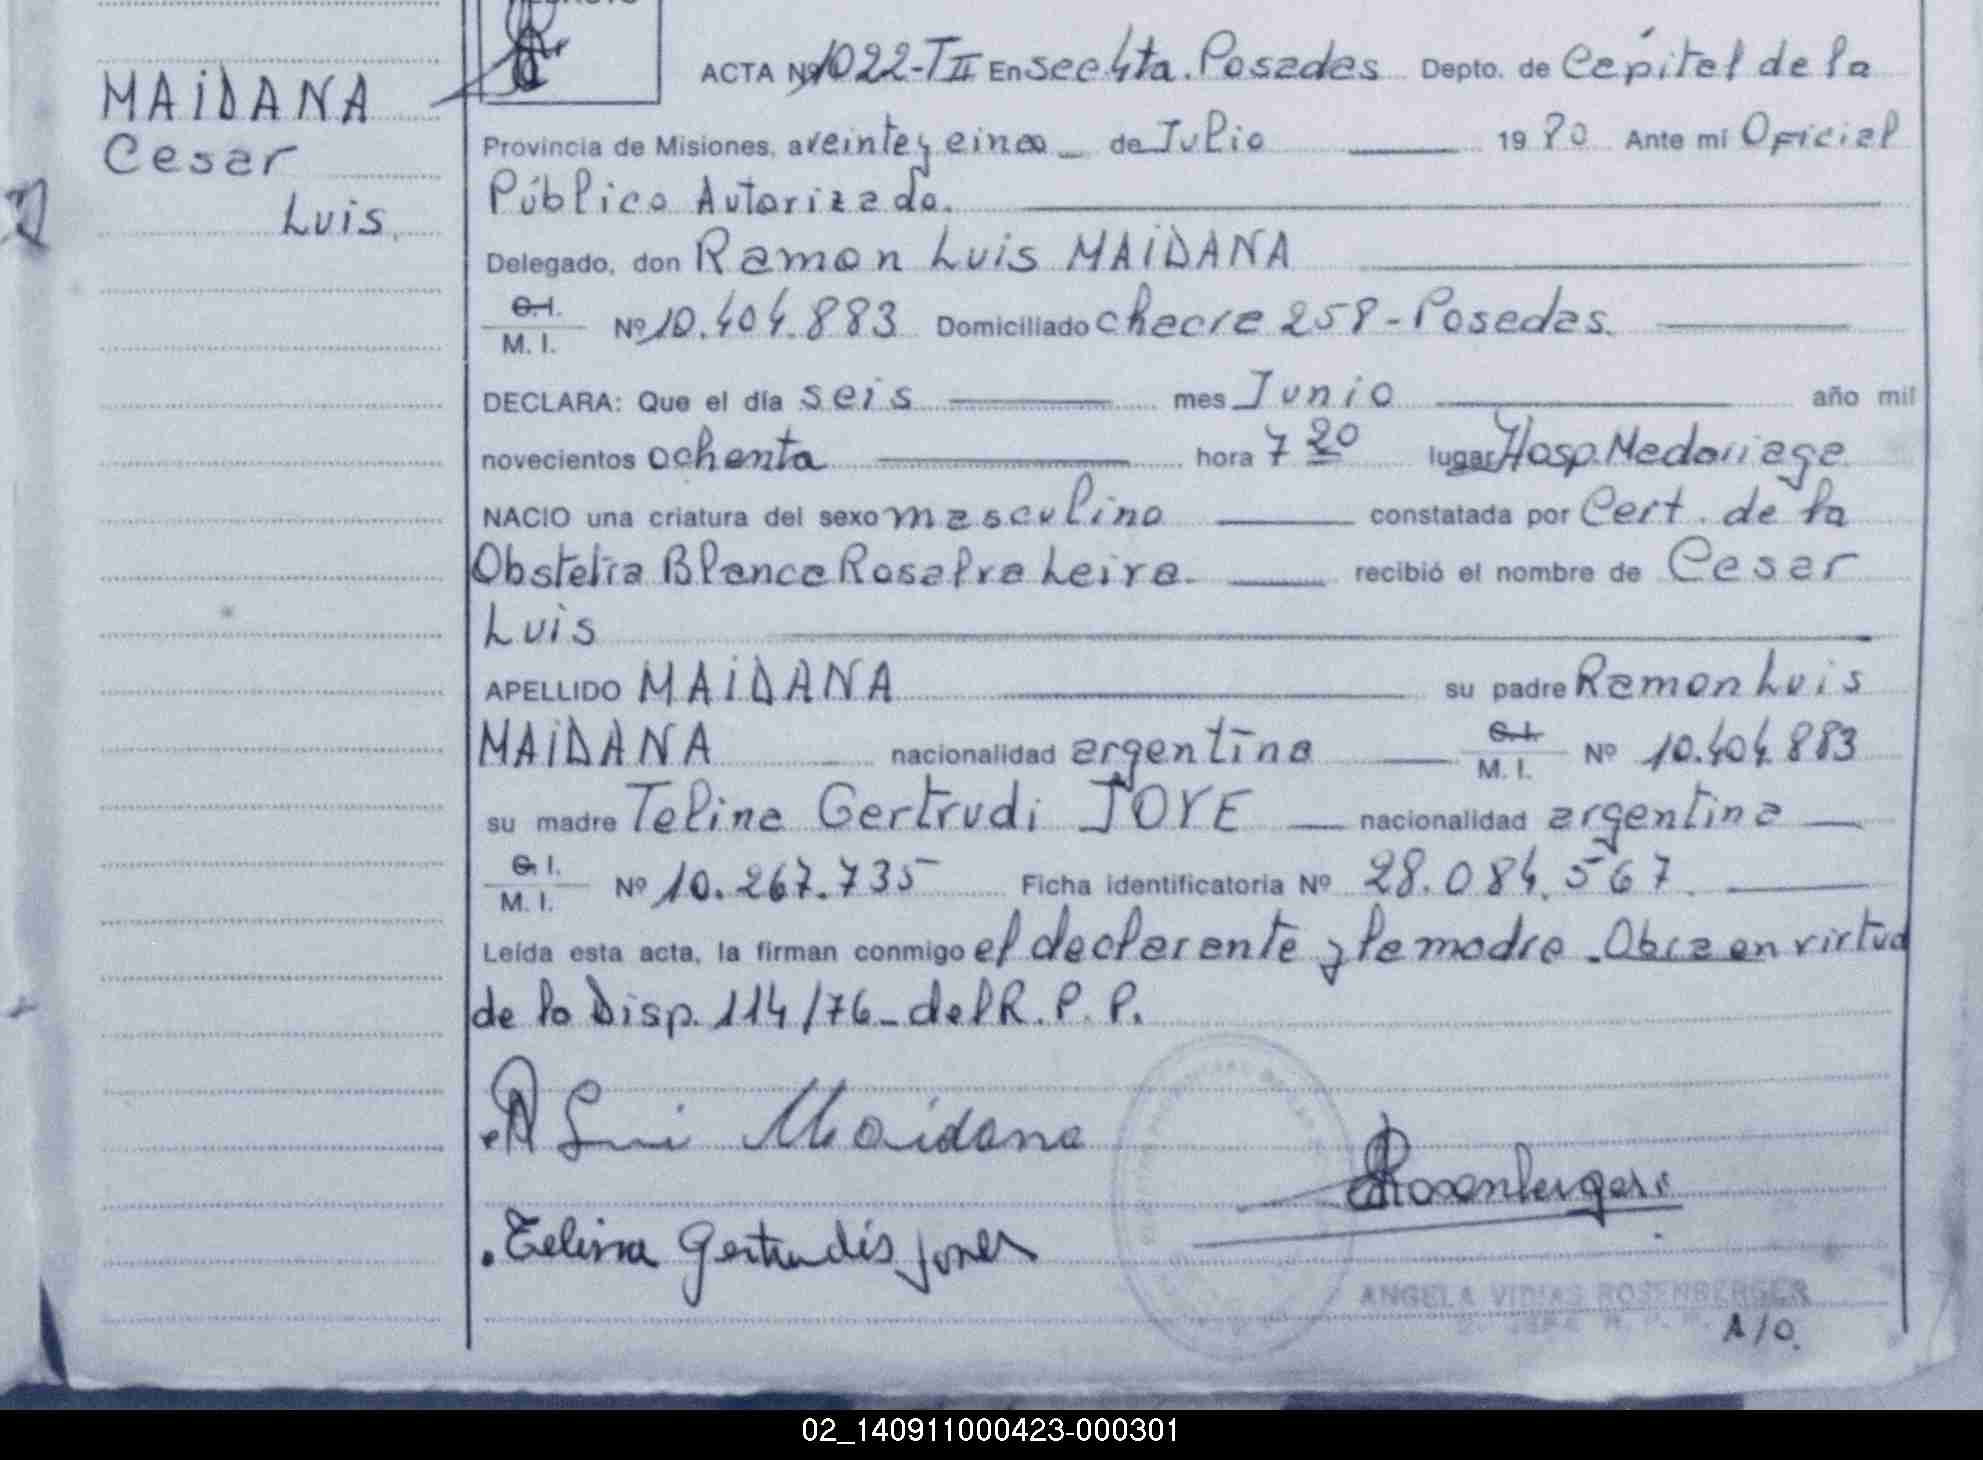 MAIDANA
Cesar
Luis.
ACTA Nº 1022-TII En secc 4ta. Posadas Depto. de Capital de la
Provincia de Misiones, a veinte y cinco de Julio 1980 Ante mí Oficial
Público Autorizado.
Delegado, don Ramon Luis MAIDANA
C.I.
M. I. Nº 10.404.883 Domiciliado chacra 258-Posadas.
DECLARA: Que el día seis mes Junio año mil
novecientos ochenta hora 7 20 lugar Hosp. Madariaga
NACIO una criatura del sexo masculino constatada por Cert. de la
Obstetra Blanca Rosalva Leiva. recibió el nombre de Cesar
Luis
APELLIDO MAIDANA su padre Ramon Luis
MAIDANA nacionalidad argentina C.I. M. I. Nº 10.404.883
su madre Telina Gertrudi JOYE nacionalidad argentina
C.I.
M. I. Nº 10.267.735 Ficha identificatoria Nº 28.084.567
Leída esta acta, la firman conmigo el declarante y la madre. Obra en virtud
de la Disp. 114/76-del R. P. P.
Luis Maidana
Rosenberger
Telina Gertrudis
ANGELA VIDIAS ROSENBERGER
A/O.
02_140911000423-000301